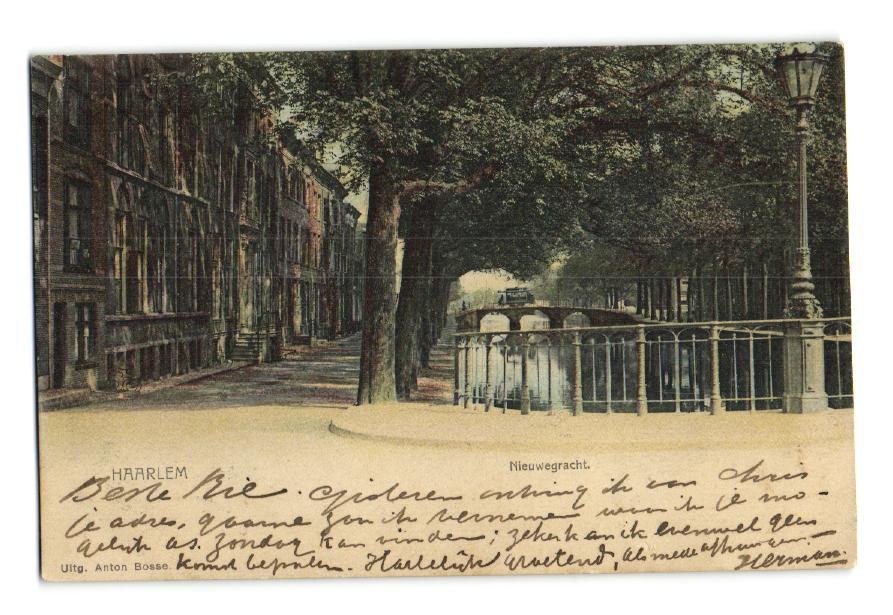 HAARLEM
Nieuwegracht.
Beste Rie. Gisteren ontving ik van Chris
je adres, gaarne zou ik vernemen waar ik je mo-
gelijk as. Zondag kan vinden; zeker kan ik evenwel geen
komst bepalen. Hartelijk groetend, als mede
Herman.
Uitg. Anton Bosse.